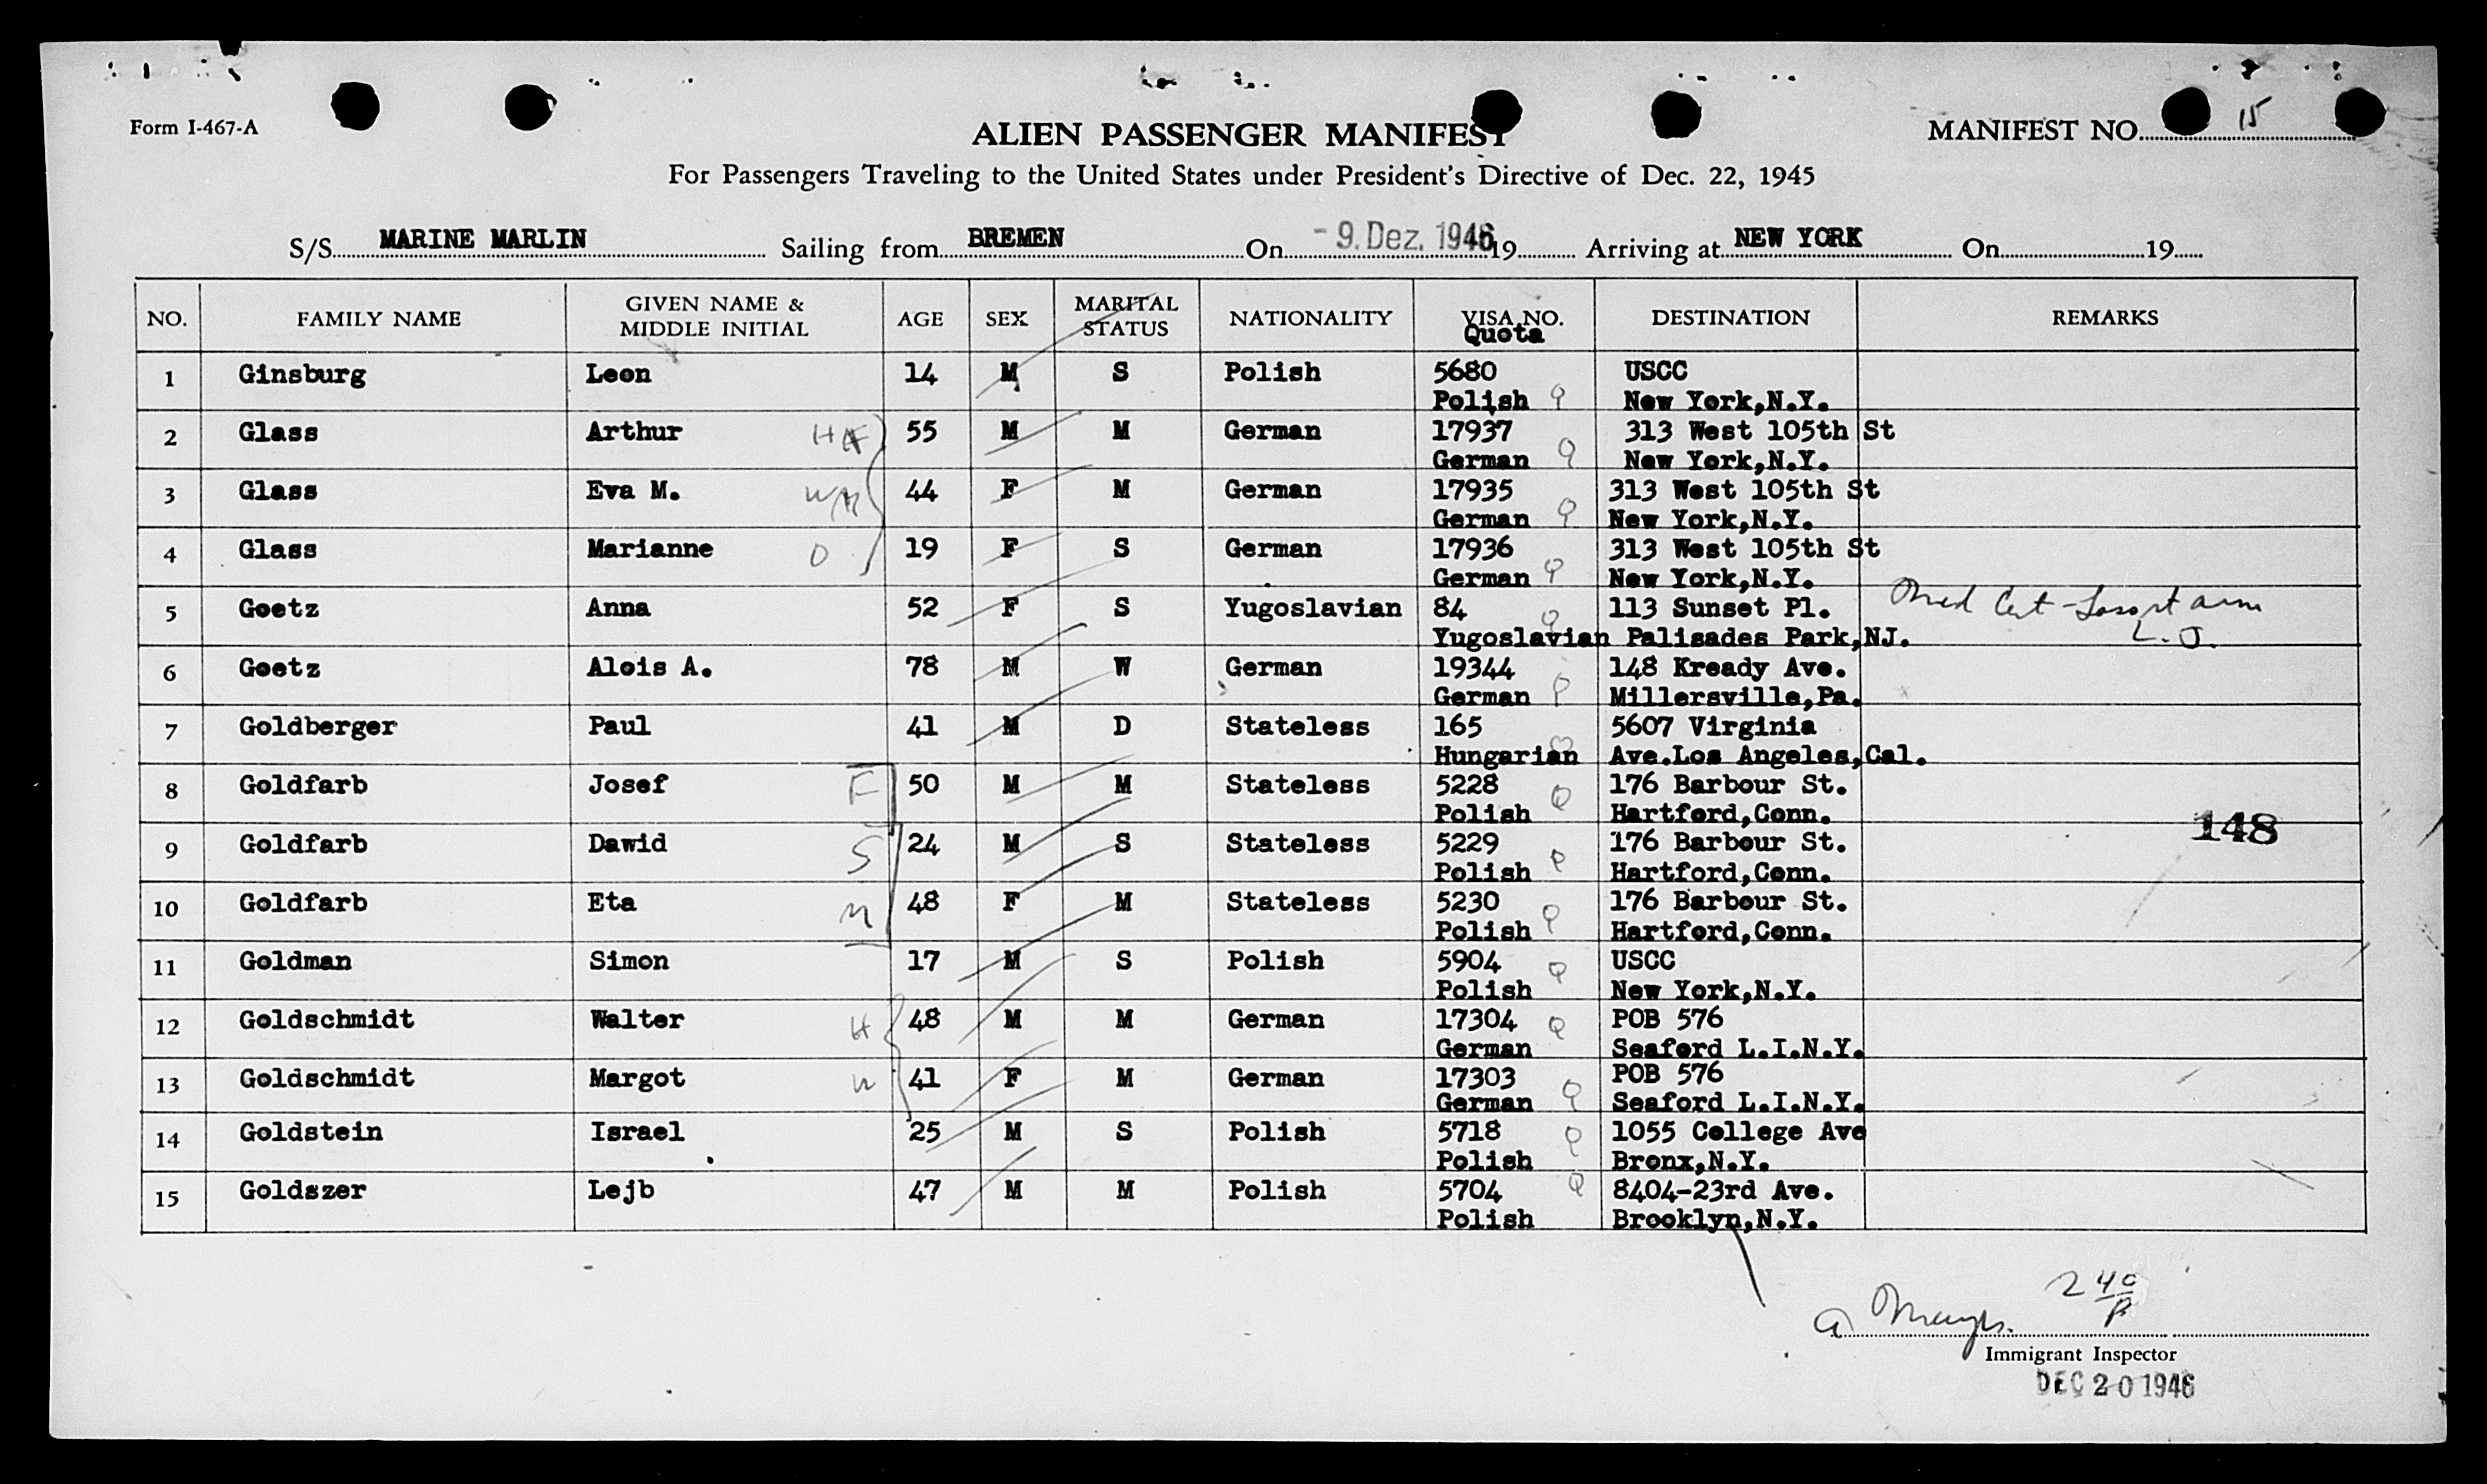 Form I-467-A
ALIEN PASSENGER MANIFEST
MANIFEST NO. 15
For Passengers Traveling to the United States under President's Directive of Dec. 22, 1945
S/S MARINE MARLIN Sailing from BREMEN On - 9. Dez. 1946 19 Arriving at NEW YORK On 19
NO. FAMILY NAME GIVEN NAME & MIDDLE INITIAL AGE SEX MARITAL STATUS NATIONALITY VISA NO. Quota DESTINATION REMARKS
1 Ginsburg Leon 14 M S Polish 5680 USCC
Polish Q New York,N.Y.
2 Glass Arthur H F 55 M M German 17937 313 West 105th St
German Q New York,N.Y.
3 Glass Eva M. W M 44 F M German 17935 313 West 105th St
German Q New York,N.Y.
4 Glass Marianne D 19 F S German 17936 313 West 105th St
German Q New York,N.Y.
5 Goetz Anna 52 F S Yugoslavian 84 Q 113 Sunset Pl. Med Cert - Loss rt arm
Yugoslavian Palisades Park,NJ. L.J.
6 Goetz Alois A. 78 M W German 19344 148 Kready Ave.
German Q Millersville,Pa.
7 Goldberger Paul 41 M D Stateless 165 5607 Virginia
Hungarian Q Ave.Los Angeles,Cal.
8 Goldfarb Josef F 50 M M Stateless 5228 Q 176 Barbour St.
Polish Hartford,Conn.
148
9 Goldfarb Dawid S 24 M S Stateless 5229 176 Barbour St.
Polish Q Hartford,Conn.
10 Goldfarb Eta M 48 F M Stateless 5230 176 Barbour St.
Polish Q Hartford,Conn.
11 Goldman Simon 17 M S Polish 5904 Q USCC
Polish New York,N.Y.
12 Goldschmidt Walter H 48 M M German 17304 Q POB 576
German Seaford L.I.N.Y.
13 Goldschmidt Margot W 41 F M German 17303 POB 576
German Q Seaford L.I.N.Y.
14 Goldstein Israel 25 M S Polish 5718 Q 1055 College Ave
Polish Bronx,N.Y.
15 Goldszer Lejb 47 M M Polish 5704 Q 8404-23rd Ave.
Polish Brooklyn,N.Y.
A
Immigrant Inspector
DEC 20 1946